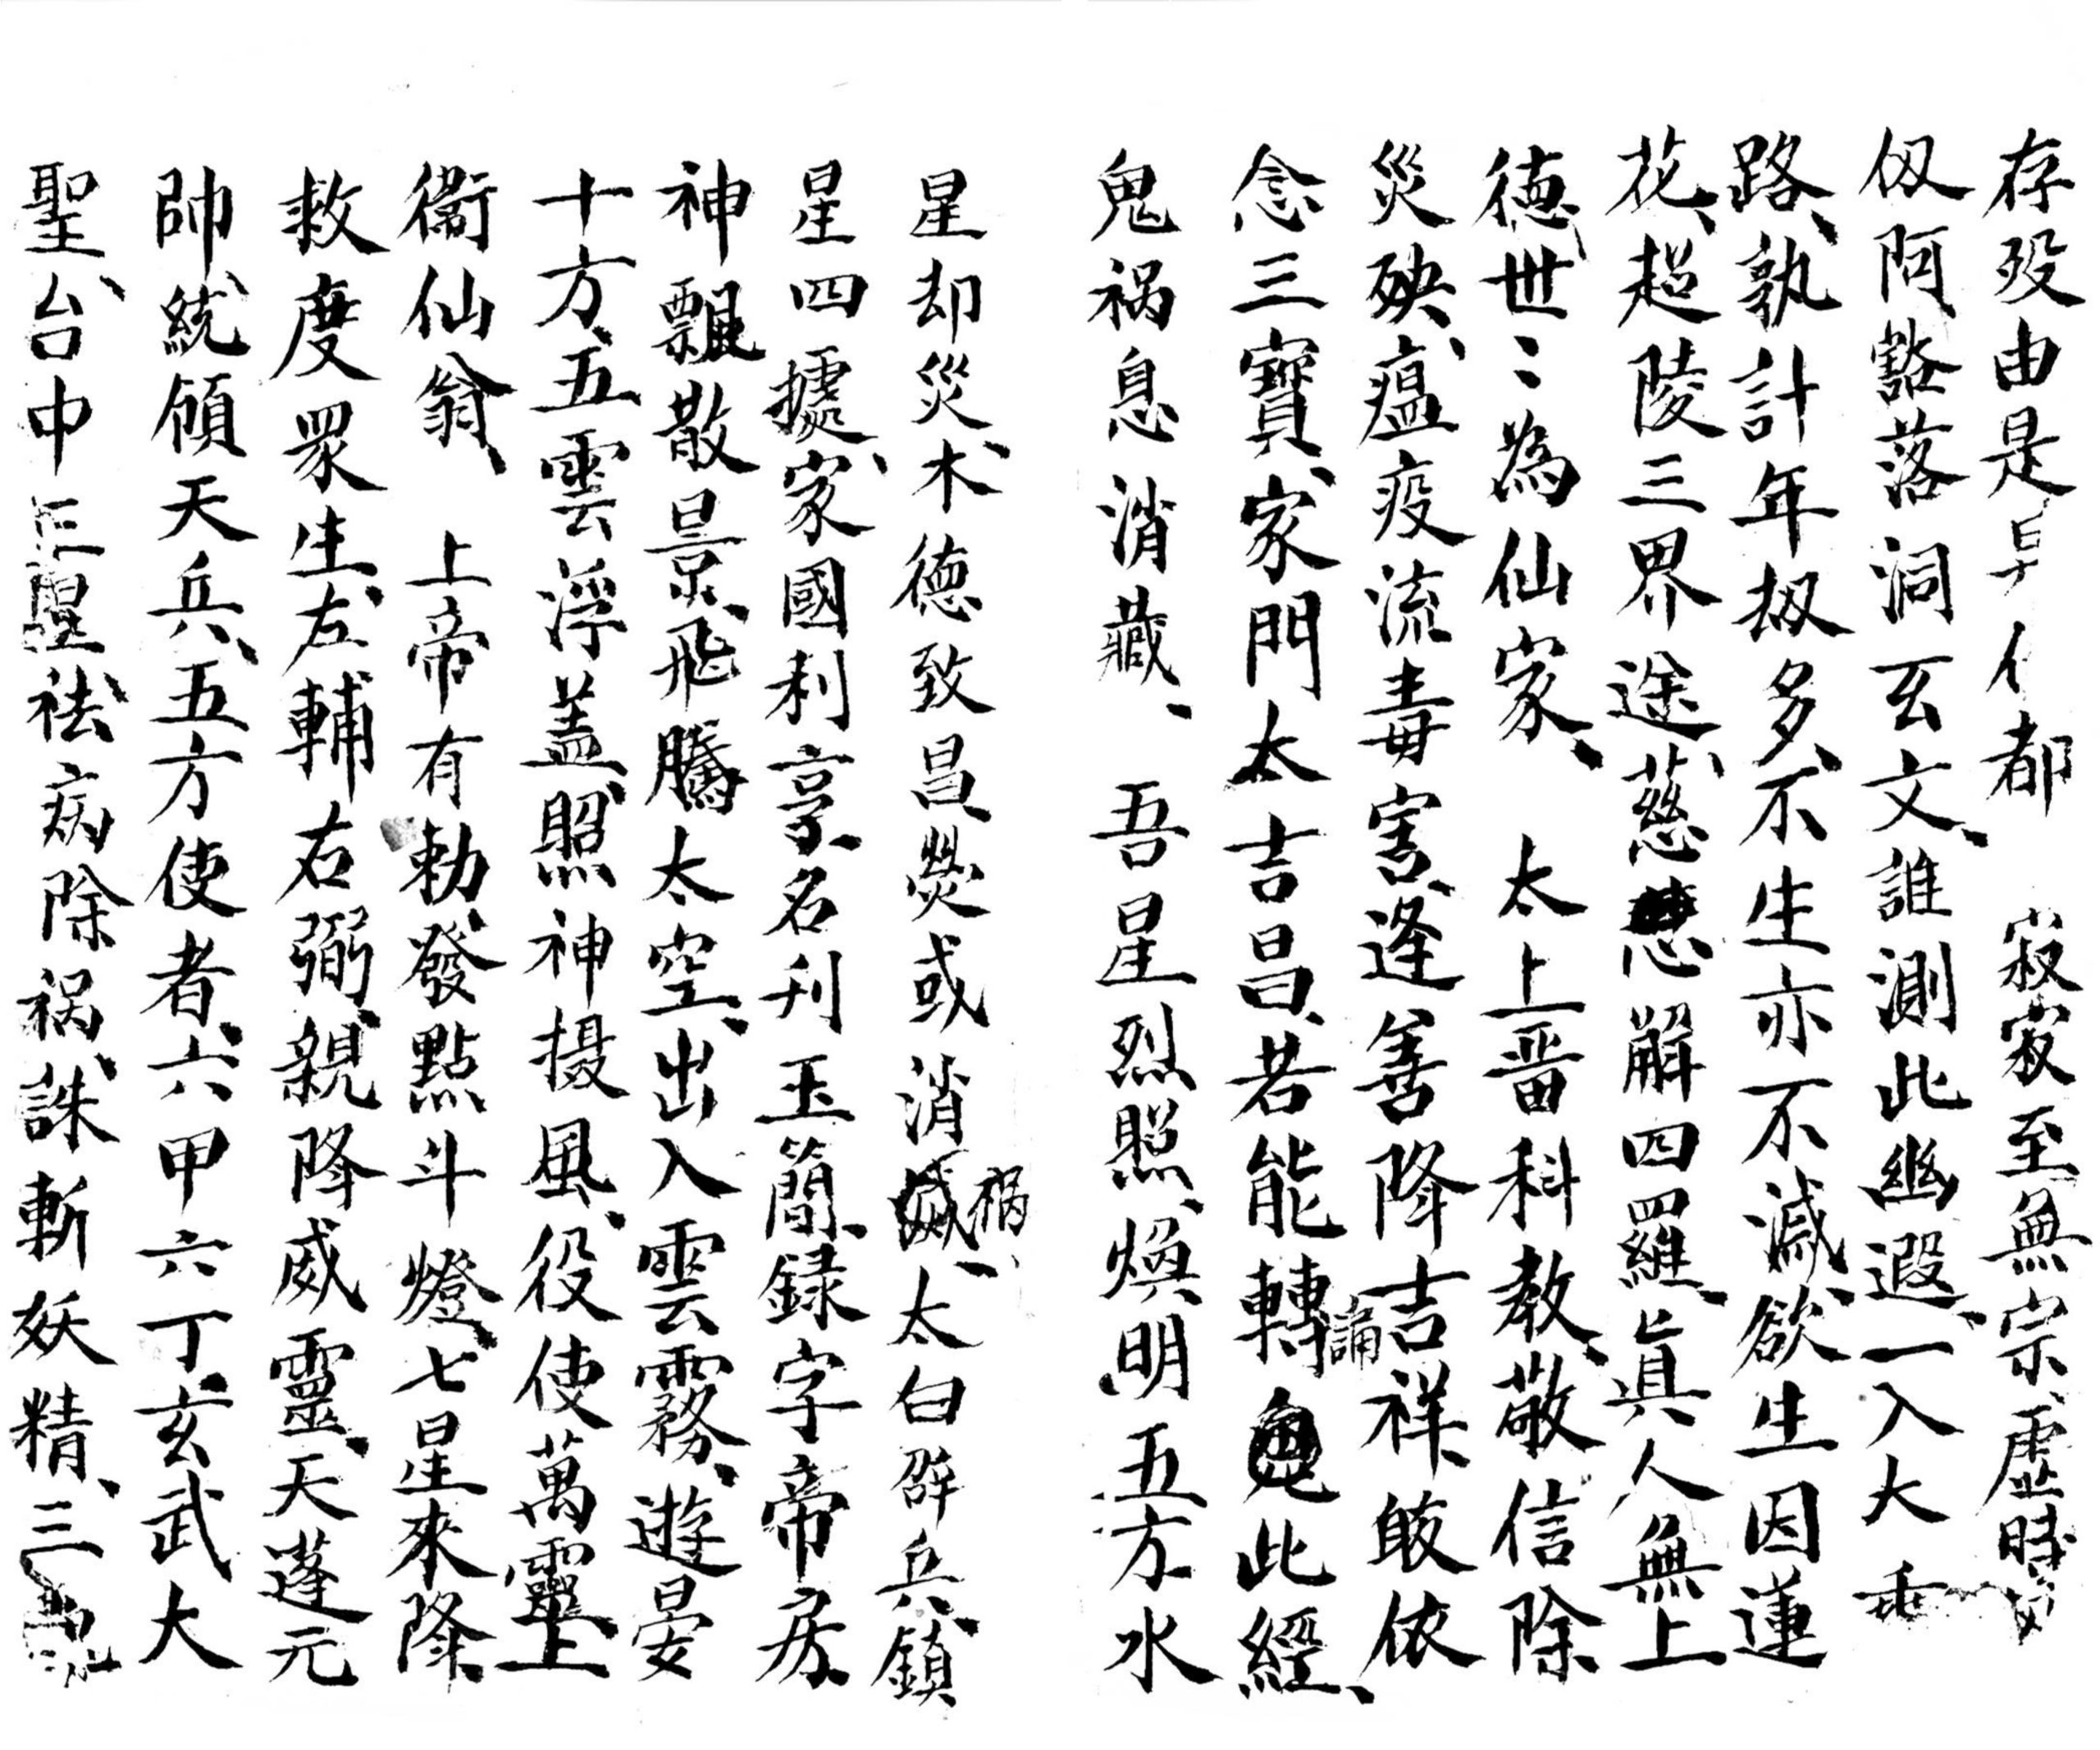 存歿由是 都　寂寂至無宗、虛時
仭阿豁落洞玄文、誰測此幽遐、一入大乗
路、孰計年刼多、不生亦不滅、欲生因蓮
花、超陵三界途、慈悲解四羅、真人無上
德、世〻為仙家、　太上晋科教、敬信除
災殃、瘟疫流毒害、逢善降吉祥、皈依
念三寶、家門太吉昌、若能轉誦此經、
鬼祸息消藏、　吾星烈照、煥明五方水
星却災、木德致昌、熒或消祸、太白辟兵、鎮
星四據、家國利享、名刋玉簡、録字帝房、
神飄散景、飛騰太空、出入雲霧、遊晏
十方、五雲浮盖、照神摄風、役使萬靈、上
衞仙翁、　上帝有勅、發點斗燈、七星來降、
救度眾生、左輔右弼、親降威靈、天蓬元
帥、統領天兵、五方使者、六甲六丁、玄武大
聖、台中三聖、祛病除祸、誅斬妖精、三